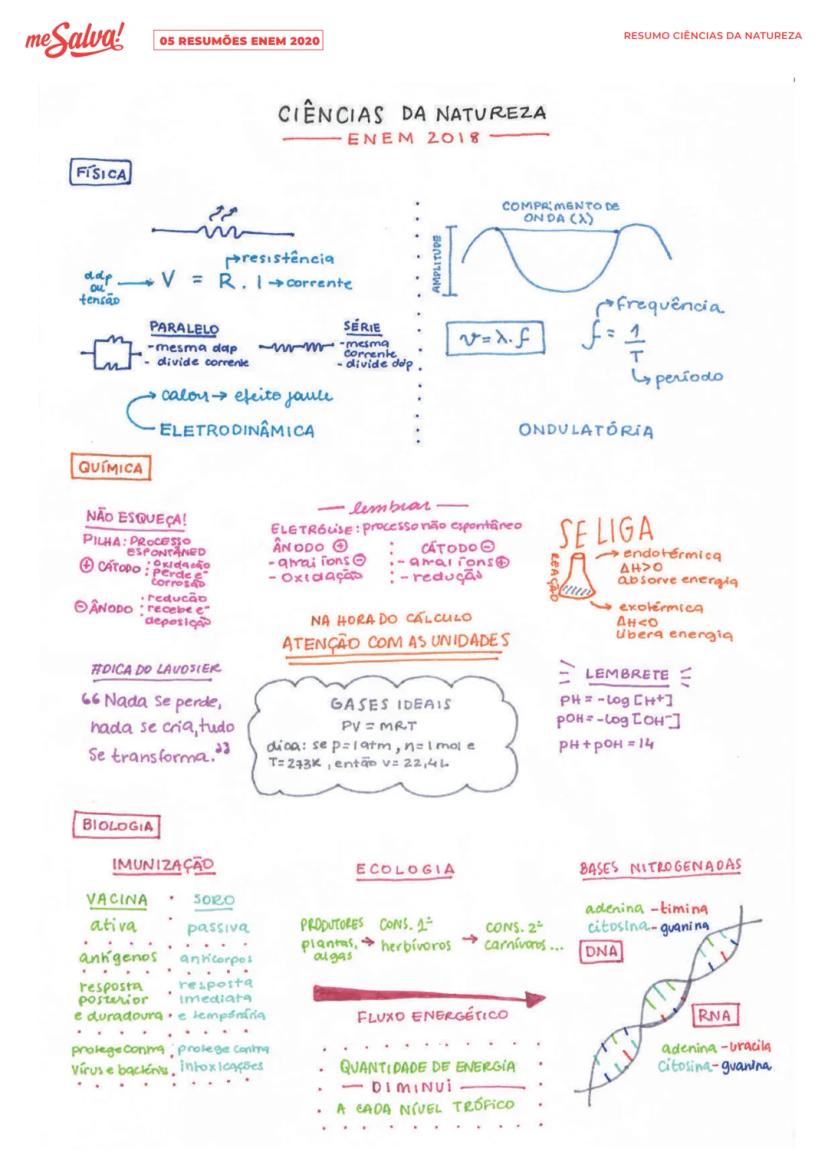 me Salva!
05 RESUMÕES ENEM 2020
RESUMO CIÊNCIAS DA NATUREZA
CIÊNCIAS DA NATUREZA
ENEM 2018
FÍSICA
resistência
ddp
ou
tensão
V = R . I → corrente
PARALELO
- mesma ddp
- divide corrente
SÉRIE
- mesma
corrente
- divide ddp
calor → efeito joule
ELETRODINÂMICA
COMPRIMENTO DE
ONDA (λ)
AMPLITUDE
v = λ . f
frequência
f = 1
T
período
ONDULATÓRIA
QUÍMICA
NÃO ESQUEÇA!
PILHA: PROCESSO
ESPONTÂNEO
⊕ CÁTODO : oxidação
perde e⁻
corrosão
⊖ ÂNODO : redução
recebe e⁻
deposição
lembrar
ELETRÓLISE: processo não espontâneo
ÂNODO ⊕
- atrai íons ⊖
- oxidação
CÁTODO ⊖
- atrai íons ⊕
- redução
SE LIGA
REAÇÃO
endotérmica
ΔH>0
absorve energia
exotérmica
ΔH<0
libera energia
NA HORA DO CÁLCULO
ATENÇÃO COM AS UNIDADES
#DICA DO LAVOSIER
“Nada se perde,
nada se cria, tudo
se transforma.”
GASES IDEAIS
PV = MRT
dica: se p=1 atm, n=1 mol e
T=273K, então v=22,4L
LEMBRETE
PH = -LOG [H+]
POH = -LOG [OH⁻]
PH + POH = 14
BIOLOGIA
IMUNIZAÇÃO
VACINA
SORO
ativa
passiva
antígenos
anticorpos
resposta
posterior
e duradoura
resposta
imediata
e temporária
protege contra
vírus e bactérias
protege contra
intoxicações
ECOLOGIA
PRODUTORES
plantas,
algas
→ CONS. 1º
herbívoros
→ CONS. 2º
carnívoros...
FLUXO ENERGÉTICO
QUANTIDADE DE ENERGIA
DIMINUI
A CADA NÍVEL TRÓFICO
BASES NITROGENADAS
adenina - timina
citosina - guanina
DNA
RNA
adenina - uracila
citosina - guanina